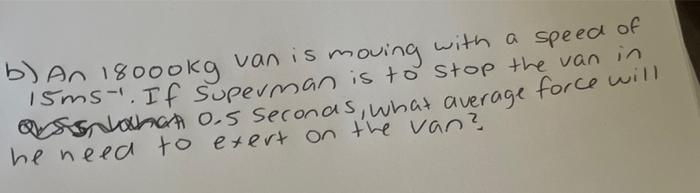 b) An 18000kg van is moving with a speed of
15ms⁻¹. If Superman is to stop the van in
0.5 seconds, what average force will
he need to exert on the van?